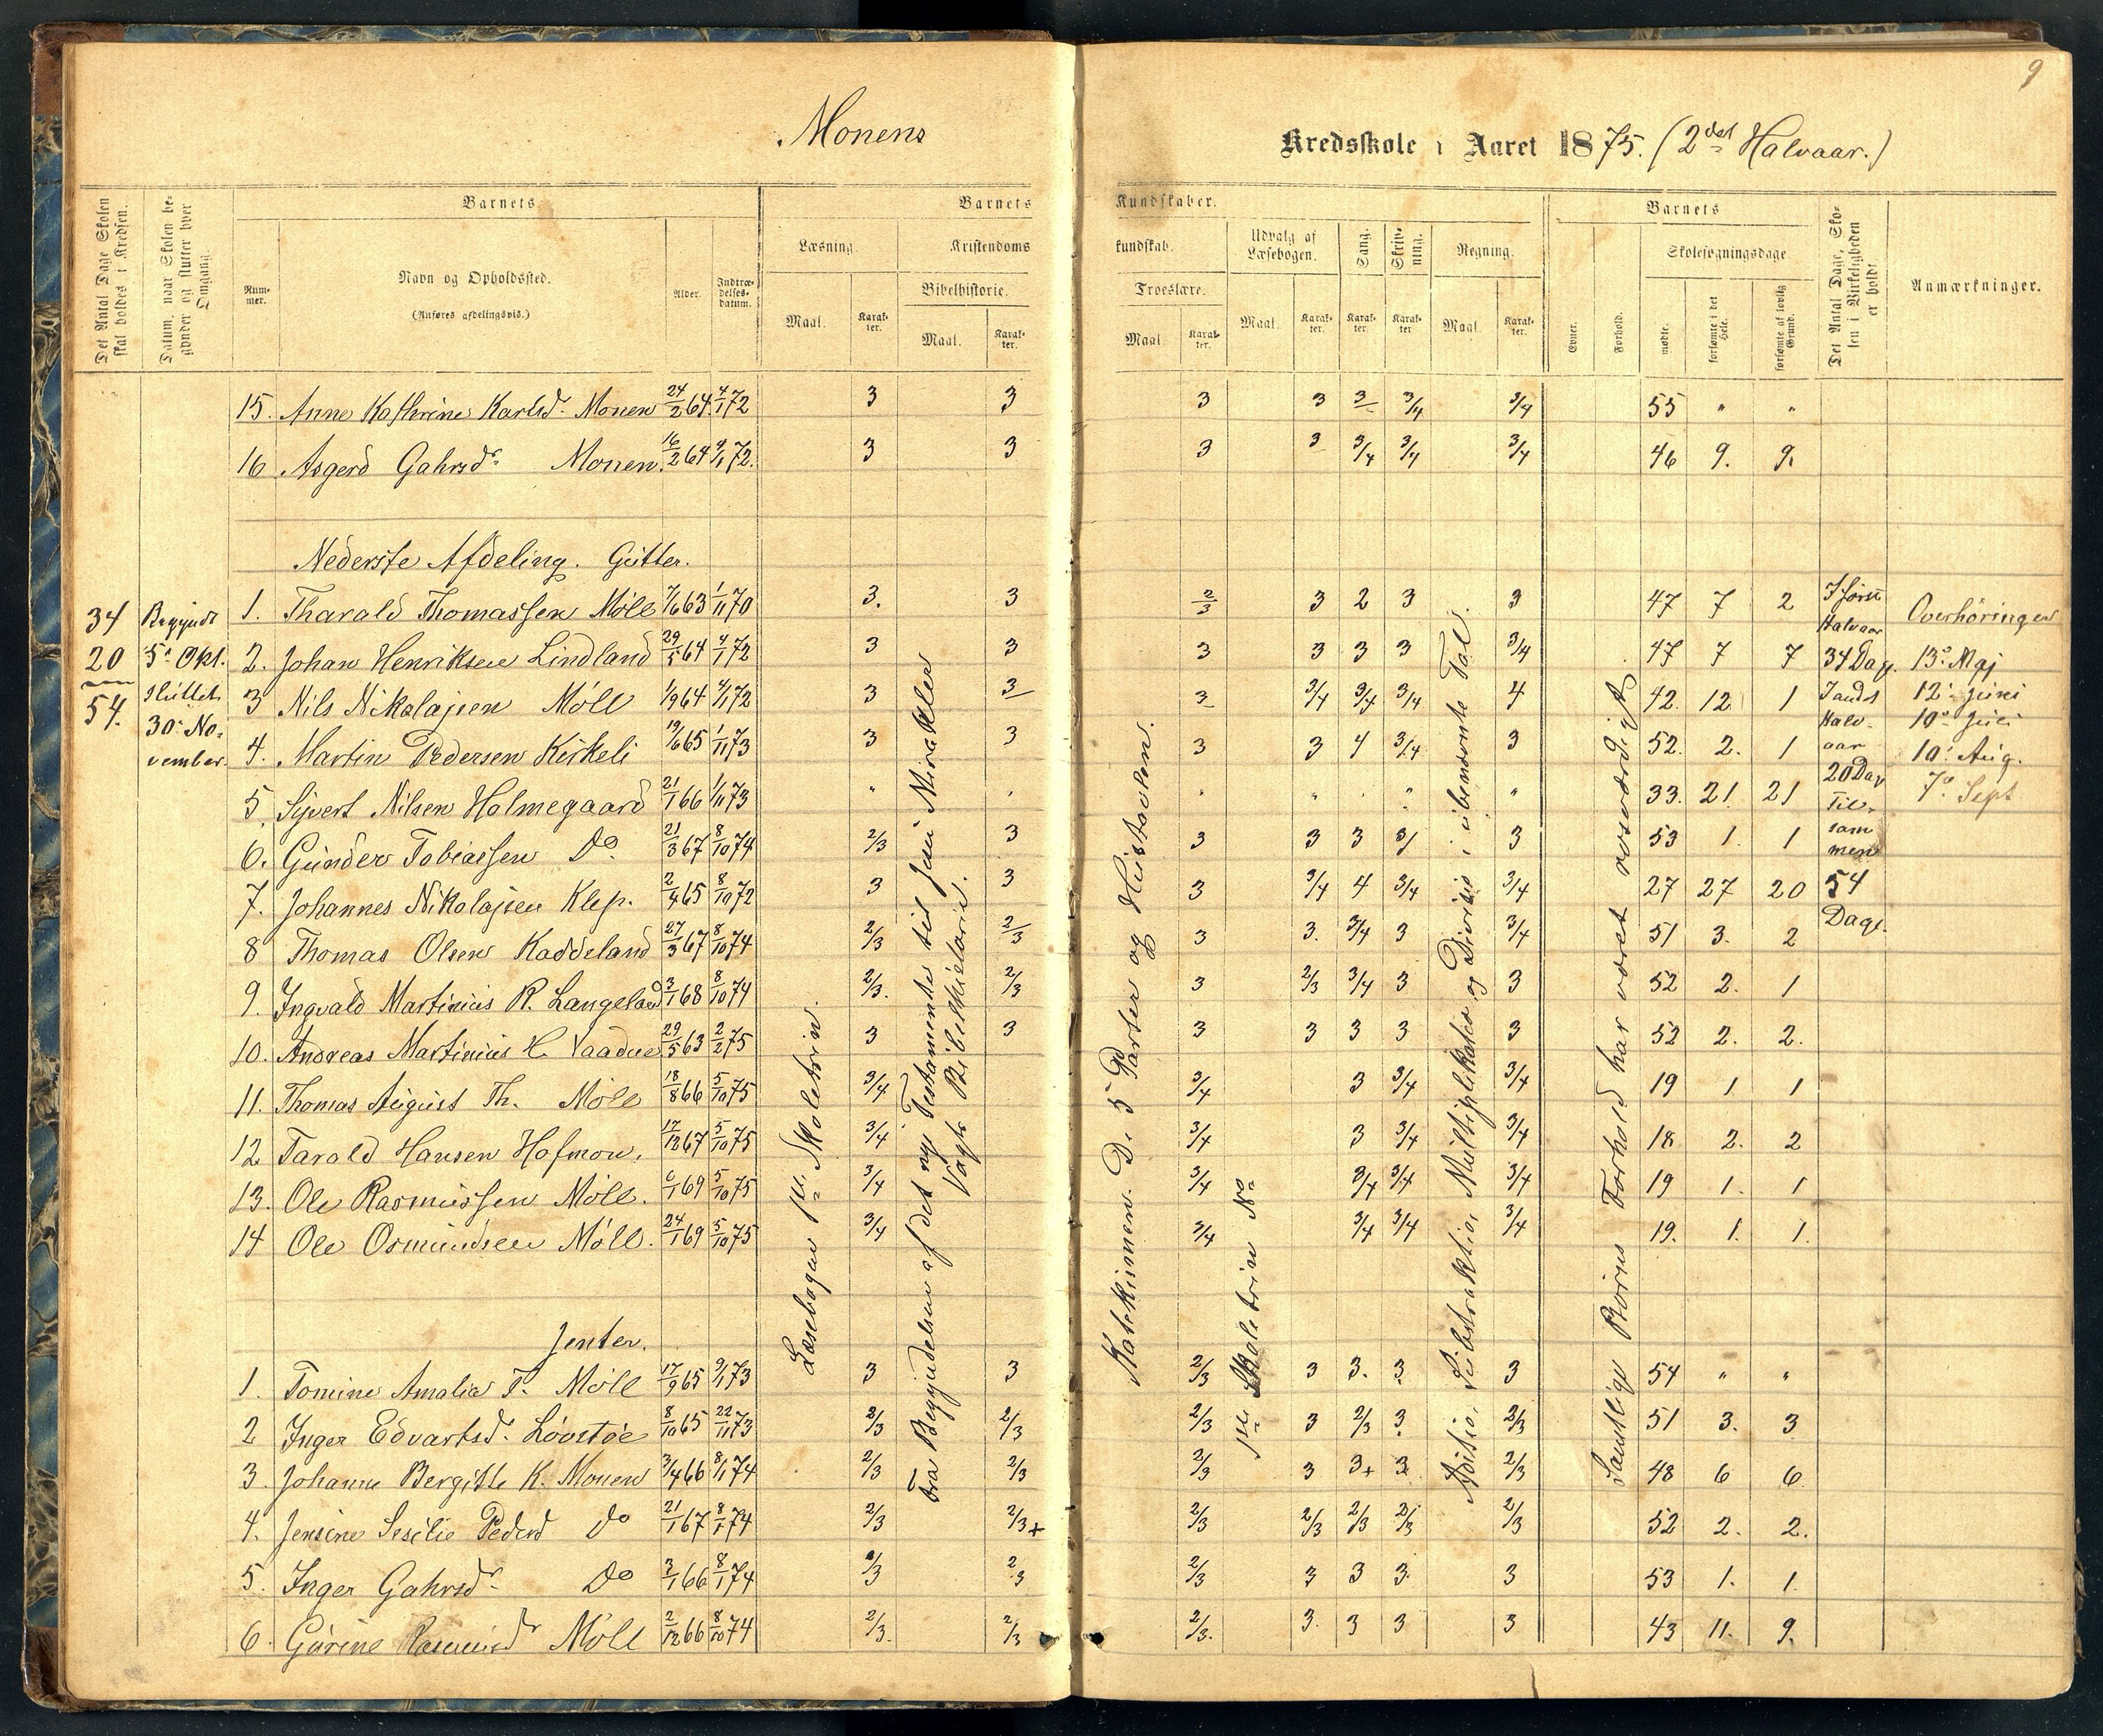 9
Monens Kredsskole i Aaret 1875. (2det Halvaar.)
Det Antal Dage Skolen skal holdes i Kredsen.
Datum, naar Skolen begynder og slutter hver Omgang.
Barnets
Nummer.
Navn og Opholdssted.
(Anføres afdelingsvis.)
Alder.
Indtrædelsesdatum.
Barnets Kundskaber.
Læsning.
Maal.
Karakter.
Kristendomskundskab.
Bibelhistorie.
Maal.
Karakter.
Troeslære.
Maal.
Karakter.
Udvalg af Læsebogen.
Maal.
Karakter.
Sang.
Karakter.
Skrivning.
Karakter.
Regning.
Maal.
Karakter.
Barnets
Evner.
Forhold.
Skolesøgningsdage
mødte.
forsømte i det Hele.
forsømte af lovlig Grund.
Det Antal Dage, Skolen i Virkeligheden er holdt.
Anmærkninger.
15. Anne Kathrine Karlsd. Monen 24/2 64. 4/1 72 3 3 3 3 3 3/4 3/4 55 " "
16 Asgerd Gahrsdr. Monen. 16/2 64 4/1 72. 3 3 3 3 3/4 3/4 3/4 46 9. 9.
Nederste Afdeling. Gutter.
1. Tharald Thomassen Møll 7/6 63 1/11 70 3. 3 2/3 3 2 3 3 47 7 2
2. Johan Henriksen Lindland 29/5 64 4/1 72 3 3 3 3 3 3 3/4 47 7 7
3 Nils Nikolajsen Møll 1/9 64 4/1 72 3 3 3 3/4 3/4 3/4 4 42. 12. 1
4. Martin Pedersen Kirkeli 19/6 65 1/11 73 3 3 3 3 4 3/4 3 52. 2. 1
5. Syvert Nilsen Holmegaard 21/1 66 1/11 73 " " " " " " " 33. 21. 21
6. Gunder Tobiassen Do. 21/3 67 8/10 74 2/3 3 3 3 3 3/ 3 53 1. 1
7. Johannes Nikolajsen Klep. 2/4 65 8/10 72 3 3 3 3/4 4 3/4 3/4 27 27 20
8 Thomas Olsen Kaddeland 27/3 67 8/10 74 2/3 2/3 3 3. 3/4 3 3/4 51 3. 2
9. Ingvald Martinius R. Langeland 3/1 68 8/10 74 2/3. 2/3 3 2/3 3/4 3 3 52 2. 1
10. Andreas Martinius H. Vaadne 29/5 63 2/2 75 3 3 3 3 3 3 3 52 2. 2.
11. Thomas August Th. Møll 18/8 66 5/10 75 3/4 3/4 3 3/4 3/4 19 1 1
12 Tarald Hansen Hofmon. 17/12 67 5/10 75 3/4 3/4 3 3/4 3/4 18 2. 2
13. Ole Rasmussen Møll. 6/1 69 5/10 75 3/4 3/4 3/4 3/4 3/4 19 1. 1
14 Ole Osmundsen Møll. 24/1 69 5/10 75 3/4 3/4 3/4 3/4 3/4 19. 1. 1.
Jenter.
1. Tomine Amalia T. Møll 17/9 65 9/1 73 3 3 2/3 3 3. 3 3 54 " "
2 Inger Edvartsd. Løvstøe 8/10 65 22/11 73 2/3 2/3 2/3 3 2/3 3 2/3 51 3. 3
3. Johanne Bergitte K. Monen 3/4 66 8/1 74 2/3 2/3 2/3 3 3+ 3 2/3 48 6 6
4. Jensine Sesilie Pedersd Do 21/1 67 8/1 74 2/3 2/3+ 2/3 2/3 2/3 2/3 2/3 52 2. 2.
5. Inger Gahrsdr. Do 3/1 66 8/1 74 2/3 2/3 2/3 3 3 3 3 53 1. 1
6. Gurine Rasmusdr Møll 2/12 66 8/10 74 2/3. 2/3 2/3. 3. 3 3 3 43 11. 9.
34
20
54.
Begyndt
5te Okt.
sluttet
30te No-
vember.
Læsebogen 1ste Skoletrin.
Fra Begyndelsen af det nye Testamente til Jesu Mirakler
Vogts Bibelhistorie.
Katekismen. De 5 Parter og Hustavlen.
1ste Skoletrin No
Addition, Subtraktion, Multiplikation og Division i ubenævnte Tal.
Samtlige Børns Forhold har været rosværdigt.
I første
Halvaar
34 Dag.
I andet
Halv-
aar
20 Dag
Til-
sam
men
54
Dage.
Overhøringer
13de Maj
12te Juni
10de Juli
10de Aug.
7de Sept